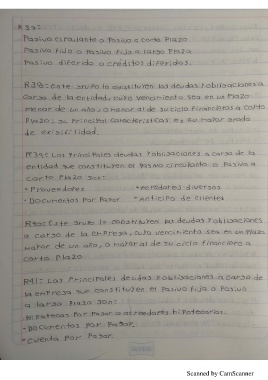 R37:
Pasivo circulante o Pasivo a corto Plazo
Pasivo fijo o Pasivo a largo Plazo
Pasivo diferido o créditos diferidos.
R38: Este grupo lo constituyen las deudas y obligaciones a
cargo de la entidad, cuyo vencimiento sea en un Plazo
menor de un año, o menor al de su ciclo financiero a corto
Plazo; su Principal característica es su mayor grado
de exigibilidad.
R39: Las Principales deudas y obligaciones a cargo de la
entidad que constituyen el Pasivo circulante o Pasivo a
corto Plazo son:
· Proveedores · Acreedores diversos
· Documentos por Pagar · Anticipo de clientes
R40: Este grupo lo constituyen las deudas y obligaciones
a cargo de la empresa, cuyo vencimiento sea en un Plazo
mayor de un año, o mayor al de su ciclo financiero a
corto Plazo
R41: Las Principales deudas y obligaciones a cargo de
la empresa que constituyen el Pasivo fijo o Pasivo
a largo Plazo son:
Hipotecas Por Pagar o acreedores hipotecarios.
· Documentos por Pagar.
· Cuenta por Pagar.
Scanned by CamScanner